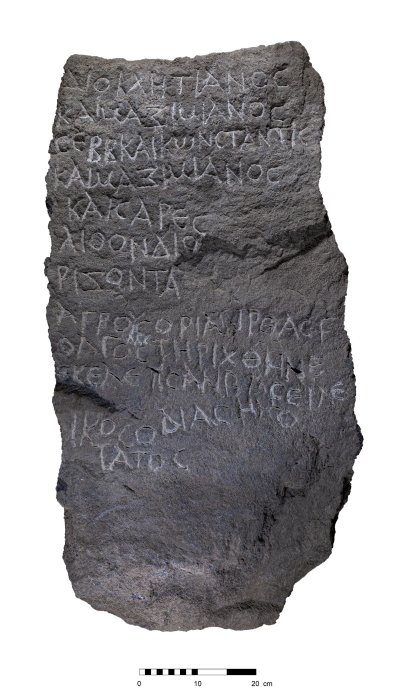 ΔΙΟΚΛΗΤΙΑΝΟϹ
ΚΑΙ ΜΑΞΙΜΙΑΝΟϹ
ϹΕΒΒ ΚΑΙ ΚΩΝϹΤΑΝΤΙϹ
ΚΑΙ ΜΑΞΙΜΙΑΝΟϹ
ΚΑΙϹΑΡΕϹ
ΛΙΘΟΝ ΔΙΟ
ΡΙΖΟΝΤΑ
ΑΓΡΟΥϹ ΟΡΙΑ
ϹΤΗΡΙΧΘΗΝΕ
ΕΚΕΛΕΥϹΑΝ ΒΑϹΕΙΛΕ
ΙΚΟϹ Ο ΔΙΑϹΗΜΟ
ΤΑΤΟϹ
0 10 20 cm